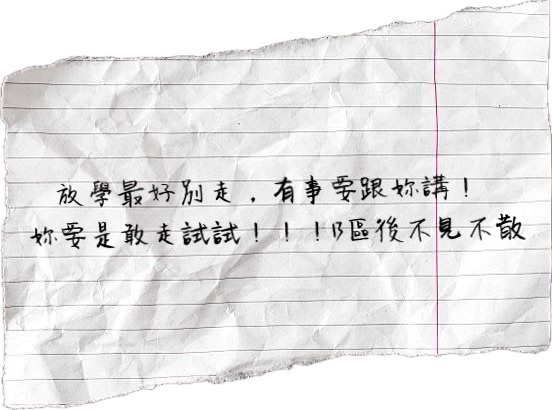 放學最好別走，有事要跟妳講！
妳要是敢走試試！！！B區後不見不散